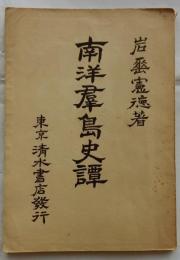 岩垂憲徳著
南洋羣島史譚
東京清水書店發行